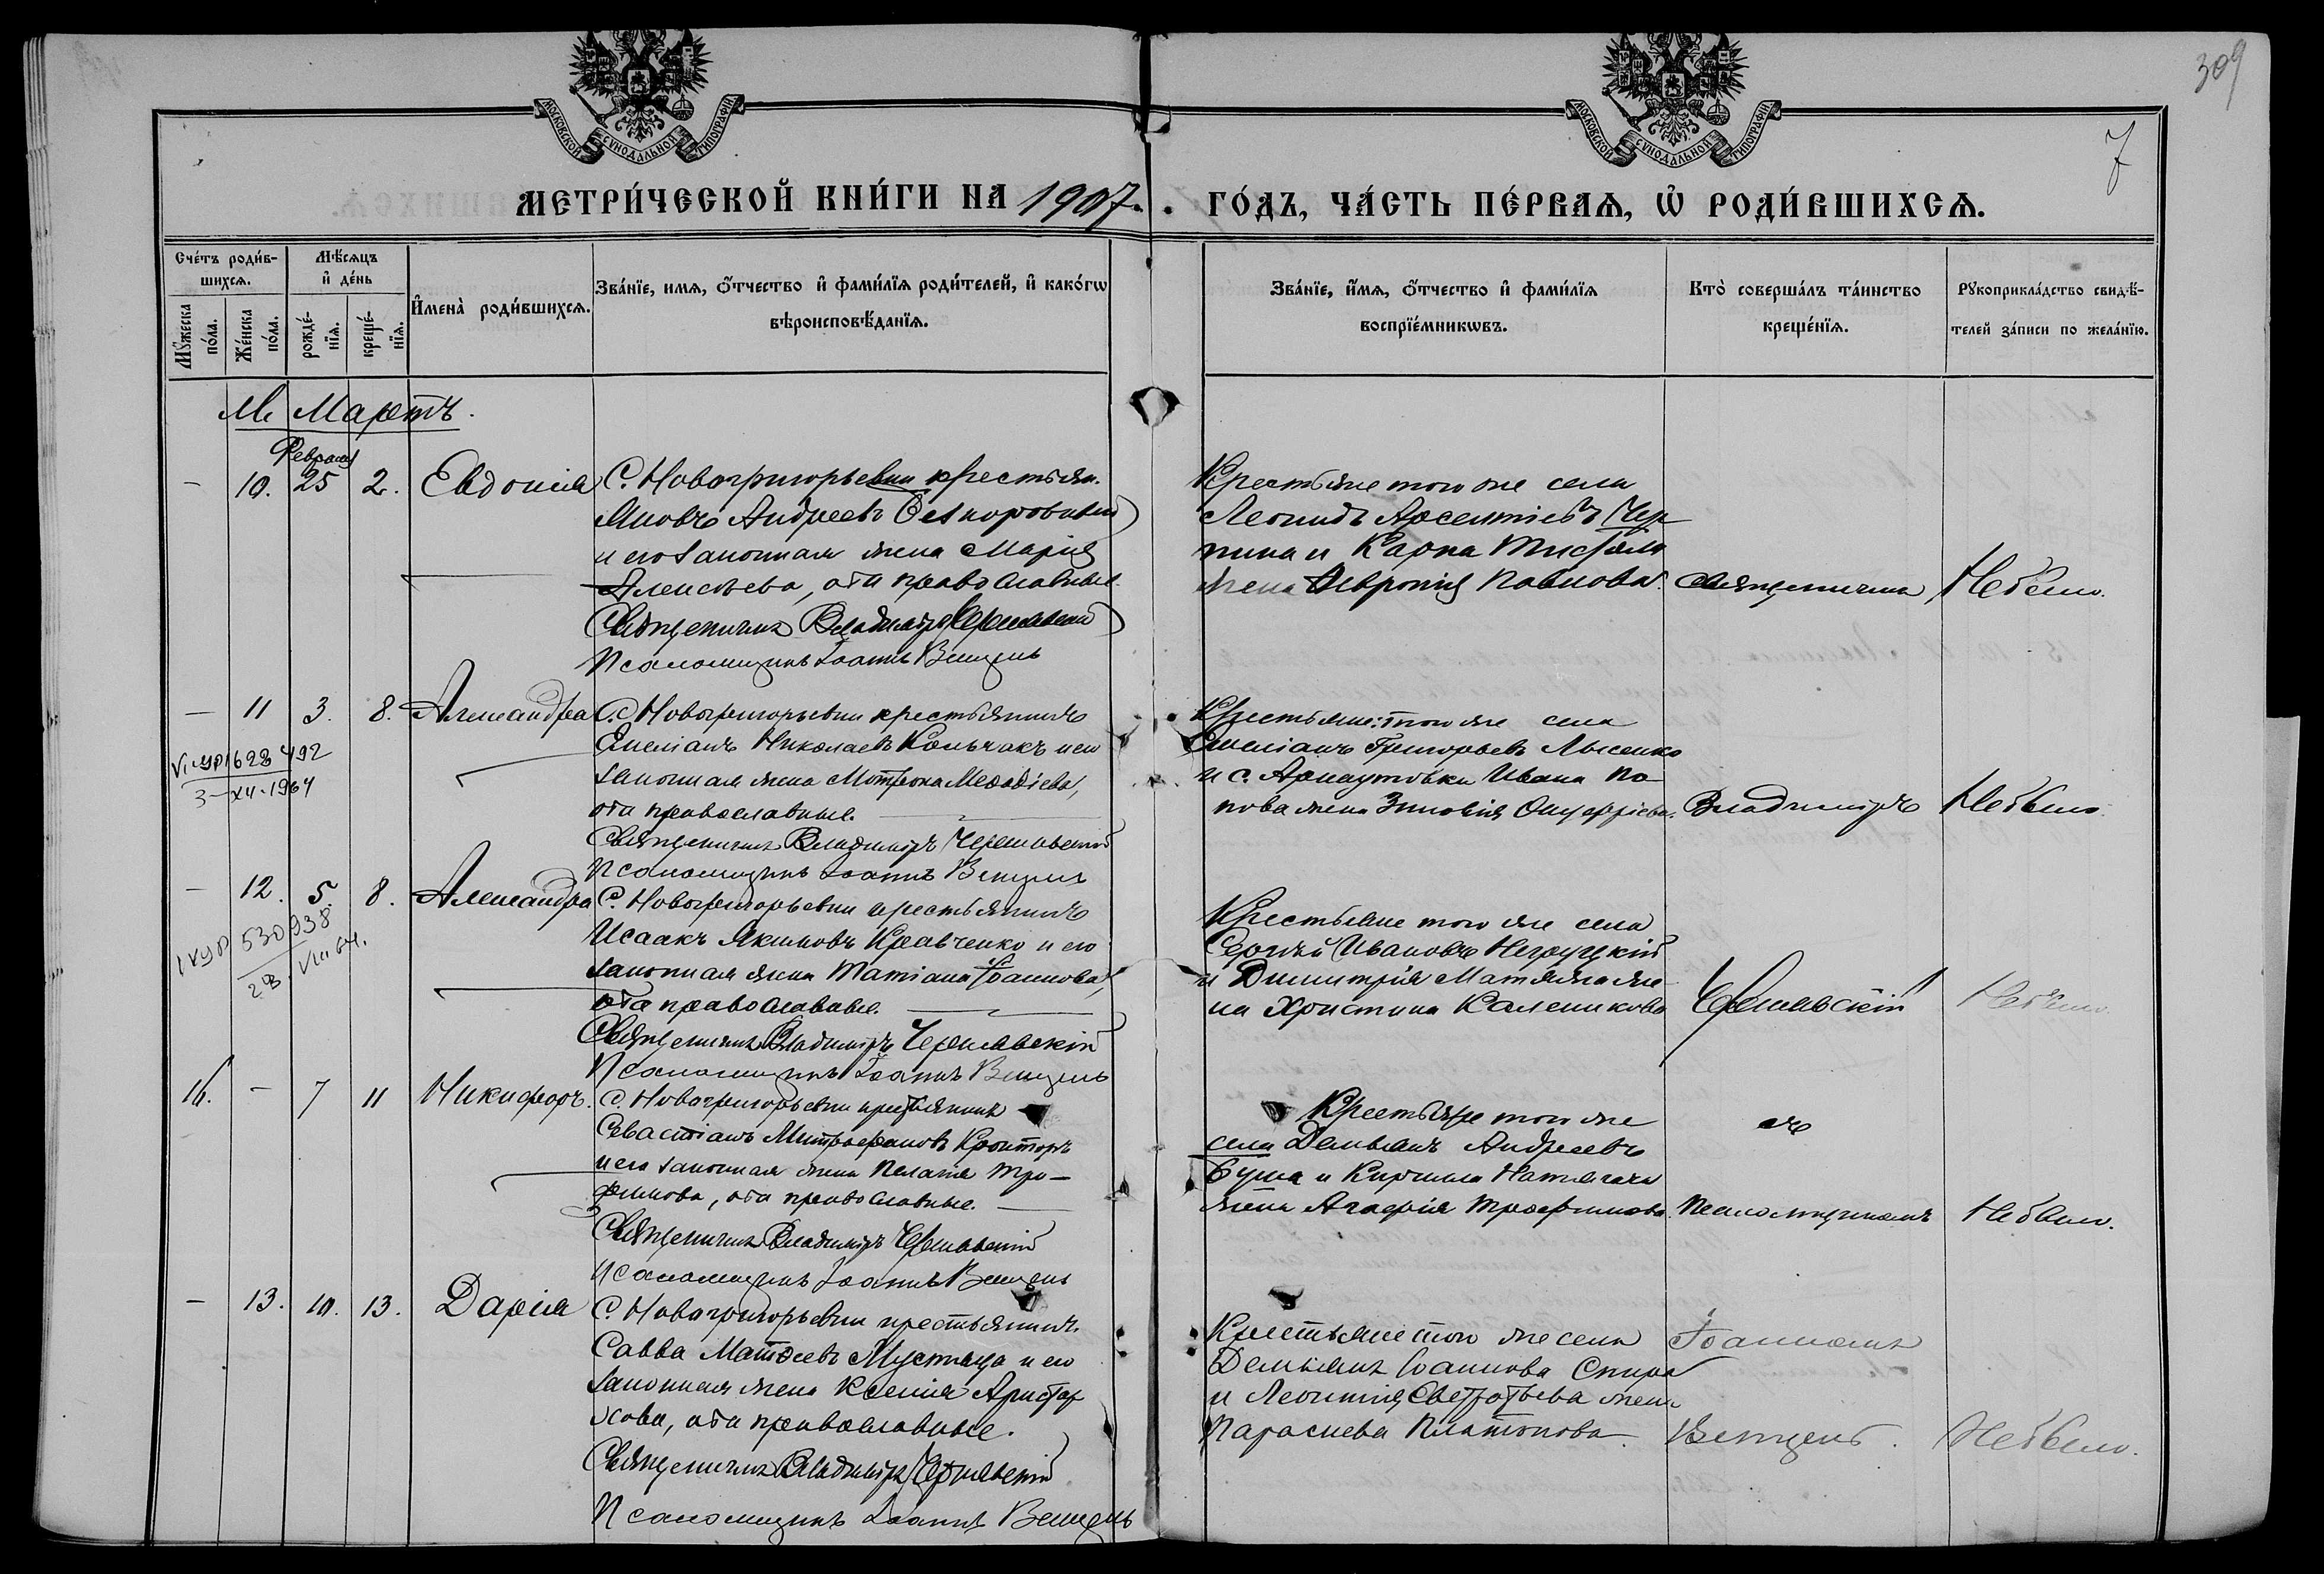 309
7
МОСКОВСКОЙ СѴНОДАЛЬНОЙ ТИПОГРАФІИ
МОСКОВСКОЙ СѴНОДАЛЬНОЙ ТИПОГРАФІИ
МЕТРИ́ЧЕСКОЙ КНИ́ГИ НА 1907.
ГО́ДЪ, ЧА́СТЬ ПЕ́РВАѦ, Ѡ҆ РОДИ́ВШИХСѦ.
Сче́тъ роди́в-
шихсѧ.
Мѣ́сѧцъ
и҆ де́нь
Мꙋ́жеска по́ла.
Же́нска по́ла.
рожде́-
нїѧ.
креще́-
нїѧ.
И҆мена̀ роди́вшихсѧ.
Зва́нїе, имѧ, ѻ҆́тчество и҆ фами́лїѧ роди́телей, и҆ како́гѡ
вѣроисповѣ́данїѧ.
Зва́нїе, и҆́мѧ, ѻ҆́тчество и҆ фами́лїѧ
воспрїе́мникѡвъ.
Кто̀ соверша́лъ та́инство
креще́нїѧ.
Рꙋкоприкла́дство свидѣ́-
телей за́писи по жела́нїю.
М. Мартъ.
Февраля
- 10. 25 2. Евдокія
С. Новогригорьевки крестьян.
Андреевъ
и его законная жена Марія
Алексѣева, оба православные.
Священникъ Владиміръ Чернявскій
Псаломщикъ Іоаннъ Венцель
Крестьяне того же села
Леонидъ Арсентіевъ
и Карпа
жена Павлова.
Священникъ
Не было.
— 11 3. 8. Александра
С. Новогригорьевки крестьянинъ
Емеліанъ Николаевъ Колчакъ и его
законная жена Мотрона Меѳодіева,
оба православные.
Священникъ Владиміръ Чернявскій
Псаломщикъ Іоаннъ Венцель
3-XII-1964
Крестьяне: того же села
Емеліанъ Григорьевъ Лысенко
и с. Арнаутовки Ивана По-
пова жена Зиновія Онуфріева.
Владиміръ
Не было.
— 12. 5. 8. Александра
С. Новогригорьевки крестьянинъ
Исаакъ Якимовъ Кравченко и его
законная жена Татіана Іоаннова,
оба православные.
Священникъ Владиміръ Чернявскій
Псаломщикъ Іоаннъ Венцель
530938
Крестьяне того же села
Сергѣй Ивановъ
и Димитрія Матяша же-
на Христина Каленикова
Чернявскій
Не было.
16. - 7 11 Никифоръ.
С. Новогригорьевки крестьянинъ
Севастіанъ Митрофановъ Кроиторъ
и его законная жена Пелагія Тро-
фимова, оба православные.
Священникъ Владиміръ Чернявскій
Псаломщикъ Іоаннъ Венцель
Крестьяне того же
села Демьянъ Андреевъ
и Кирилла
жена Агафія Трофимова.
съ
Псаломщикомъ
Не было.
— 13. 10. 13. Дарія
С. Новогригорьевки крестьянинъ
Савва Матѳеевъ Мустяца и его
законная жена Ксенія Аристар
хова, оба православные.
Священникъ Владиміръ Чернявскій
Псаломщикъ Іоаннъ Венцель
Крестьяне того же села
Демьянъ Іоаннова
и Леонтія жена
Параскева Платонова.
Іоанномъ
Венцель.
Не было.